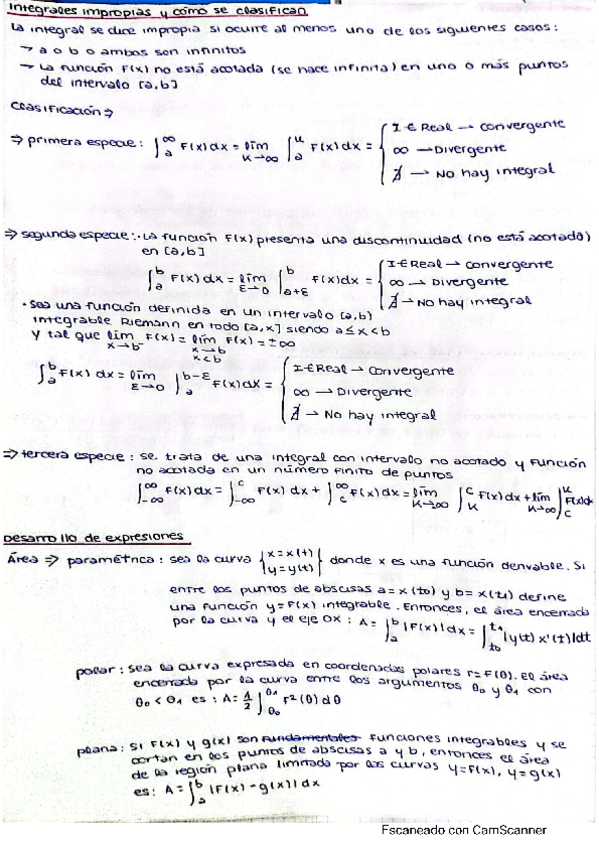 Integrales impropias y cómo se clasifican
La integral se dice impropia si ocurre al menos uno de los siguientes casos:
→ a o b o ambos son infinitos
→ La función F(x) no está acotada (se hace infinita) en uno o más puntos
del intervalo [a,b]
Clasificación ⇒
⇒ primera especie: ∫_a^∞ F(x)dx = lím_{K→∞} ∫_a^K F(x)dx = { I ∈ Real → Convergente
∞ → Divergente
∄ → No hay integral
⇒ segunda especie: · La función F(x) presenta una discontinuidad (no está acotada)
en [a,b]
∫_a^b F(x)dx = lím_{ε→0} ∫_{a+ε}^b F(x)dx = { I ∈ Real → Convergente
∞ → Divergente
∄ → No hay integral
· sea una función definida en un intervalo [a,b)
integrable Riemann en todo [a,x] siendo a ≤ x < b
y tal que lím_{x→b⁻} F(x) = lím_{x→b, x<b} F(x) = ±∞
∫_a^b F(x) dx = lím_{ε→0} ∫_a^{b-ε} F(x)dx = { I ∈ Real → Convergente
∞ → Divergente
∄ → No hay integral
⇒ tercera especie: se trata de una integral con intervalo no acotado y función
no acotada en un número finito de puntos
∫_{-∞}^∞ F(x)dx = ∫_{-∞}^c F(x) dx + ∫_c^∞ F(x)dx = lím_{K→∞} ∫_K^c F(x)dx + lím_{K→∞} ∫_c^K F(x)dx
Desarrollo de expresiones
Área ⇒ paramétrica: sea la curva { x = x(t) y = y(t) } donde x es una función derivable. Si
entre los puntos de abscisas a = x(t₀) y b = x(t₁) define
una función y = F(x) integrable. Entonces, el área encerrada
por la curva y el eje OX: A = ∫_a^b |F(x)|dx = ∫_{t₀}^{t₁} |y(t) x'(t)|dt
polar: sea la curva expresada en coordenadas polares r = F(θ). El área
encerrada por la curva entre los argumentos θ₀ y θ₁ con
θ₀ < θ₁ es: A = 1/2 ∫_{θ₀}^{θ₁} r²(θ) dθ
plana: Si F(x) y g(x) son fundamentales funciones integrables y se
cortan en los puntos de abscisas a y b, entonces el área
de la región plana limitada por las curvas y = F(x), y = g(x)
es: A = ∫_a^b |F(x) - g(x)| dx
Escaneado con CamScanner